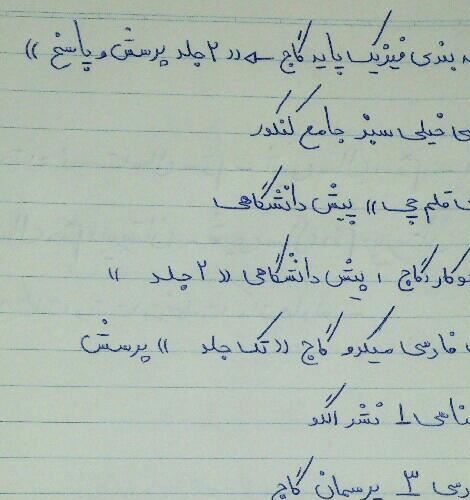 ه بندی فیزیک پایه گاج ← «۲ جلد پرسش و پاسخ»
ی خیلی سبز جامع کنکور
قلم چی» پیش دانشگاهی
وکار گاج ، پیش دانشگاهی «۲ جلد»
فارسی میکرو گاج «تک جلد» پرسش
ناسی ۱ نشر الگو
رسی ۳ پرسمان گاج